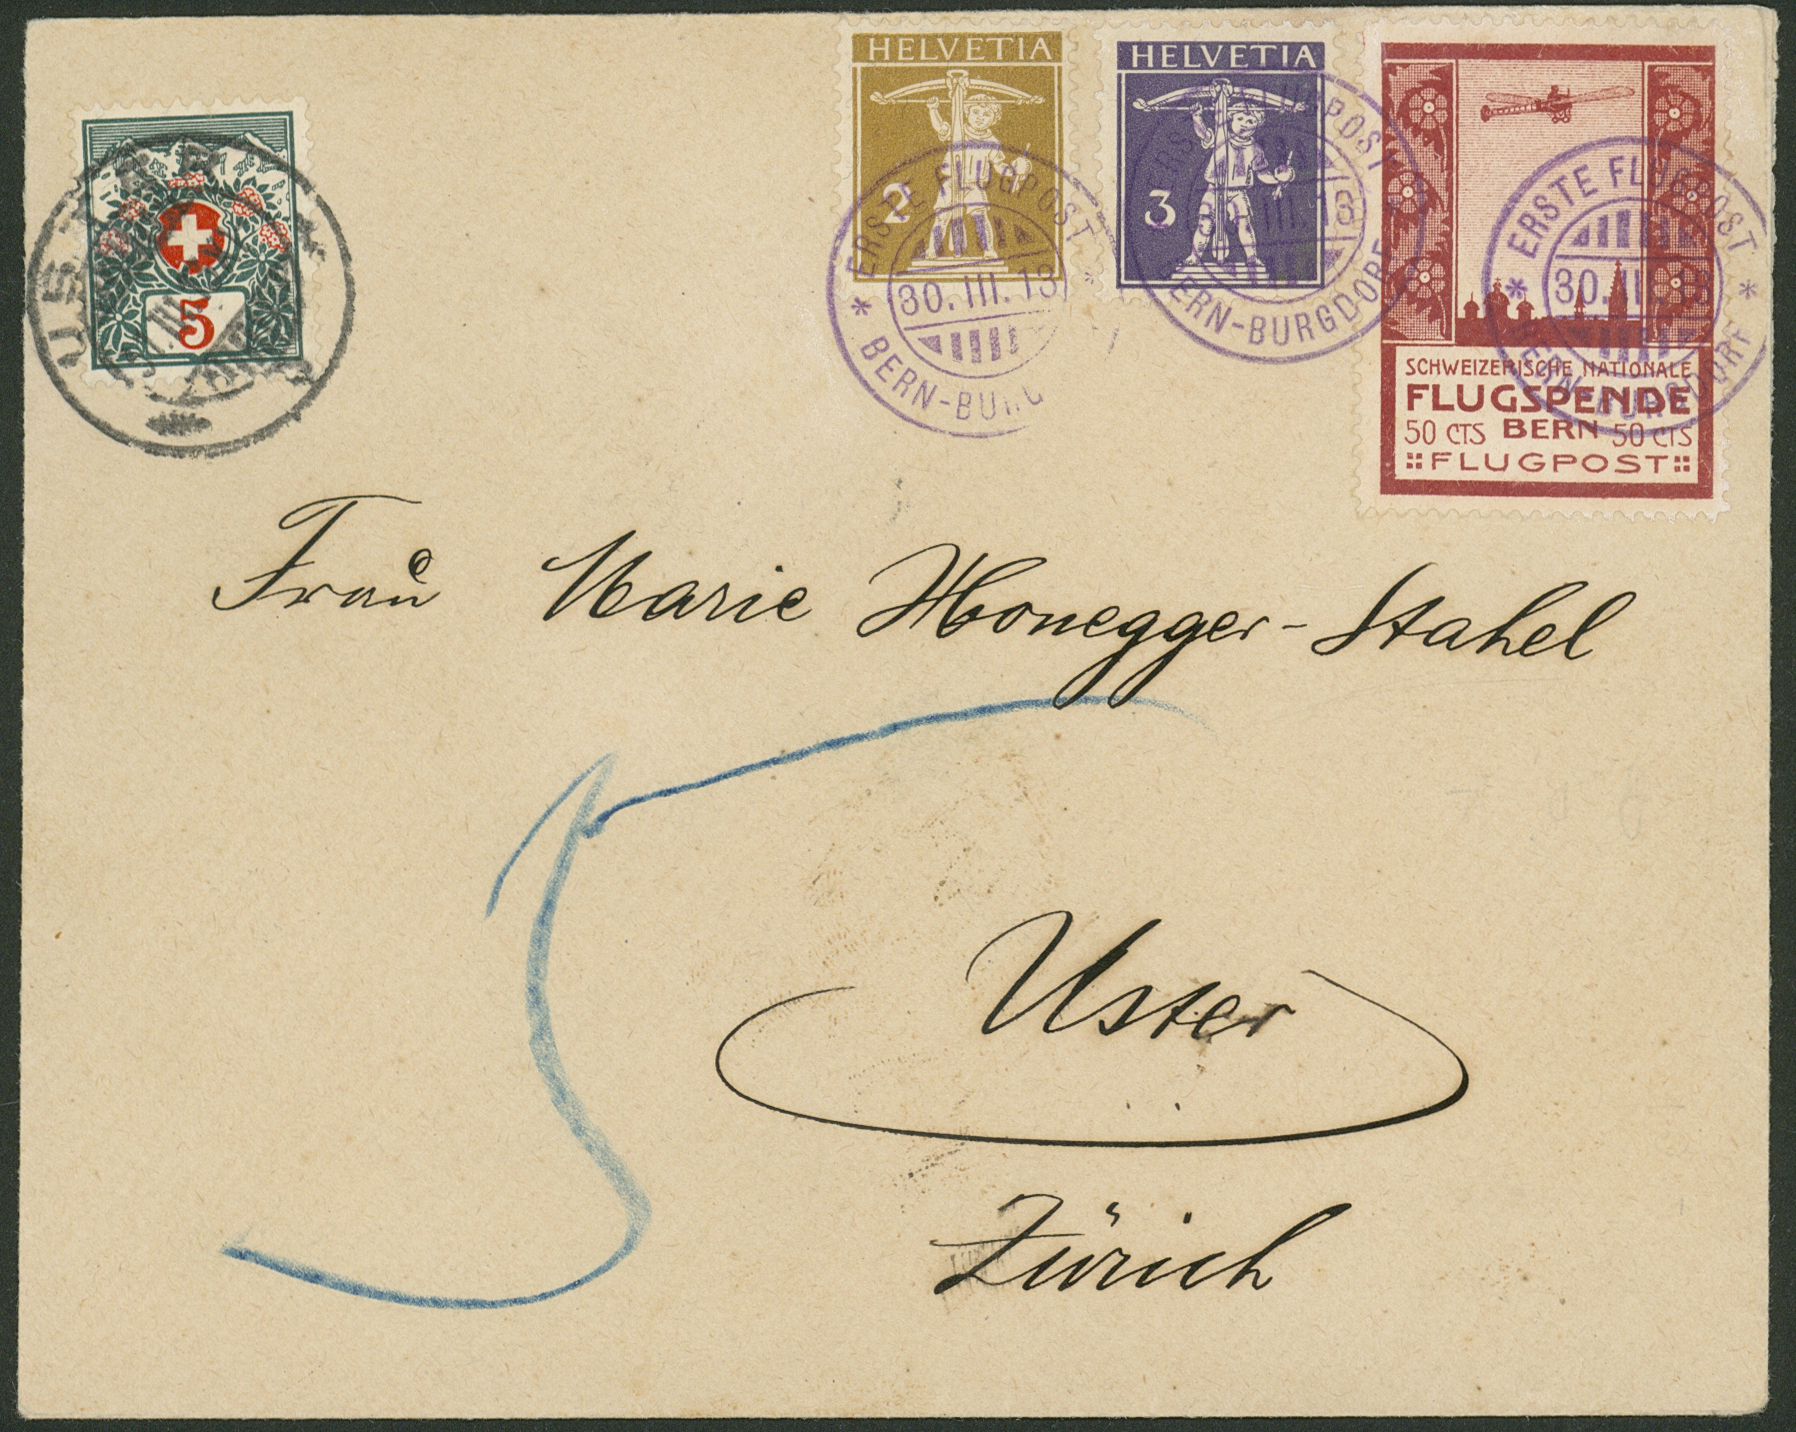 HELVETIA
2
HELVETIA
3
5
USTER
ERSTE FLUGPOST
30.III.13
BERN-BURG
ERSTE FLUGPOST
III.13
BERN-BURGDORF
ERSTE FLUGPOST
30.III.13
BERN-BURGDORF
SCHWEIZERISCHE NATIONALE
FLUGSPENDE
50 CTS BERN 50 CTS
FLUGPOST
Frau Marie Honegger-Stahel
5
Uster
Zürich